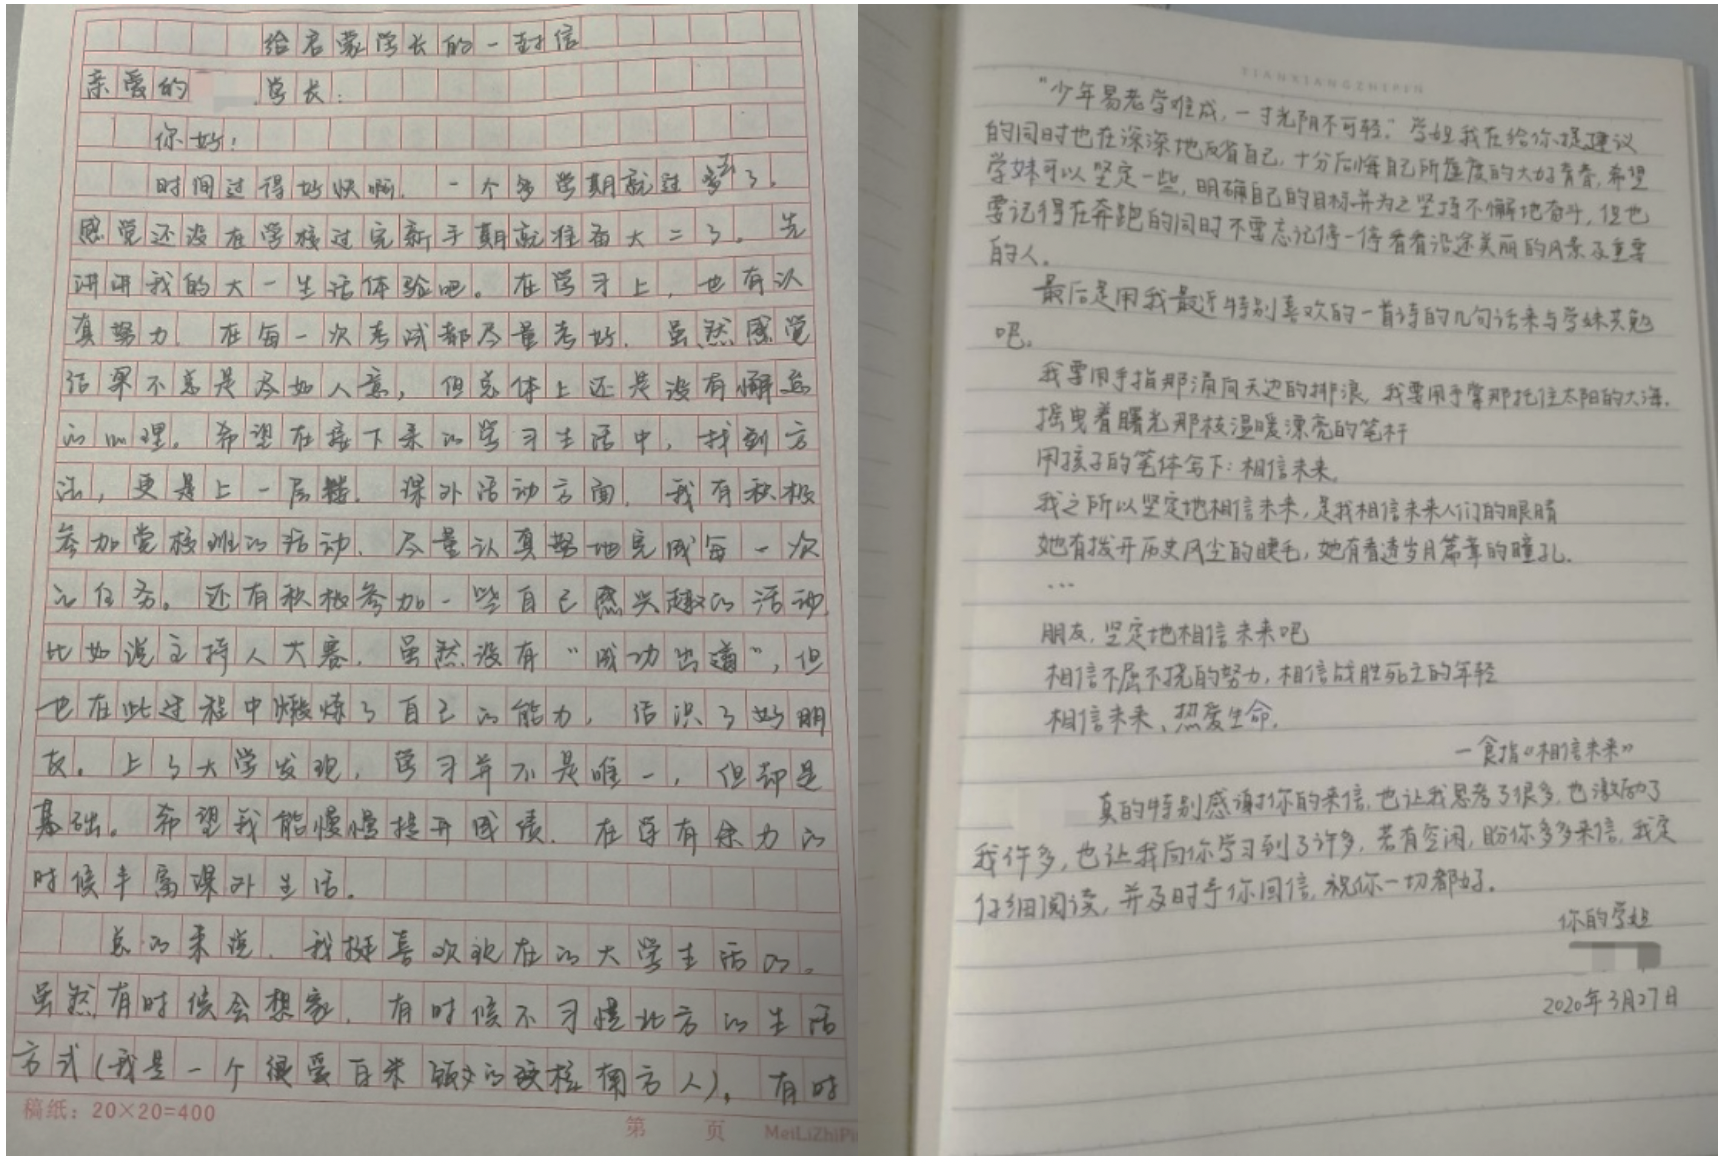 给启蒙学长的一封信
亲爱的 学长：
你好！
时间过得好快啊，一个多学期就过去了。
感觉还没在学校过完新手期就准备大二了。先
讲讲我的大一生活体验吧。在学习上，也有认
真努力，在每一次考试都尽量考好，虽然感觉
结果不总是尽如人意，但总体上还是没有懈怠
的心理。希望在接下来的学习生活中，找到方
法，更是上一层楼。课外活动方面，我有积极
参加党校班的活动，尽量认真努地完成每一次
的任务。还有积极参加一些自己感兴趣的活动，
比如说主持人大赛，虽然没有“成功出道”，但
也在此过程中锻炼了自己的能力，结识了好朋
友。上了大学发现，学习并不是唯一，但却是
基础。希望我能慢慢提升成绩，在学有余力的
时候丰富课外生活。
总的来说，我挺喜欢现在的大学生活的。
虽然有时候会想家，有时候不习惯北方的生活
方式（我是一个很爱白米饭的硬核南方人），有时
稿纸：20×20=400
第 页
MeiLiZhiPi
TIANXIANGZHIPIN
“少年易老学难成，一寸光阴不可轻。”学姐我在给你提建议
的同时也在深深地反省自己，十分后悔自己所虚度的大好青春，希望
学妹可以坚定一些，明确自己的目标并为之坚持不懈地奋斗，但也
要记得在奔跑的同时不要忘记停一停看看沿途美丽的风景及重要
的人。
最后是用我最近特别喜欢的一首诗的几句话来与学妹共勉
吧。
我要用手指那涌向天边的排浪，我要用手掌那托住太阳的大海，
摇曳着曙光那枝温暖漂亮的笔杆
用孩子的笔体写下：相信未来。
我之所以坚定地相信未来，是我相信未来人们的眼睛
她有拨开历史风尘的睫毛，她有看透岁月篇章的瞳孔。
…
朋友，坚定地相信未来吧
相信不屈不挠的努力，相信战胜死亡的年轻
相信未来、热爱生命。
—食指《相信未来》
真的特别感谢你的来信，也让我思考了很多，也激励了
我许多，也让我向你学习到了许多，若有空闲，盼你多多来信，我定
仔细阅读，并及时予你回信，祝你一切都好。
你的学姐
2020年3月27日